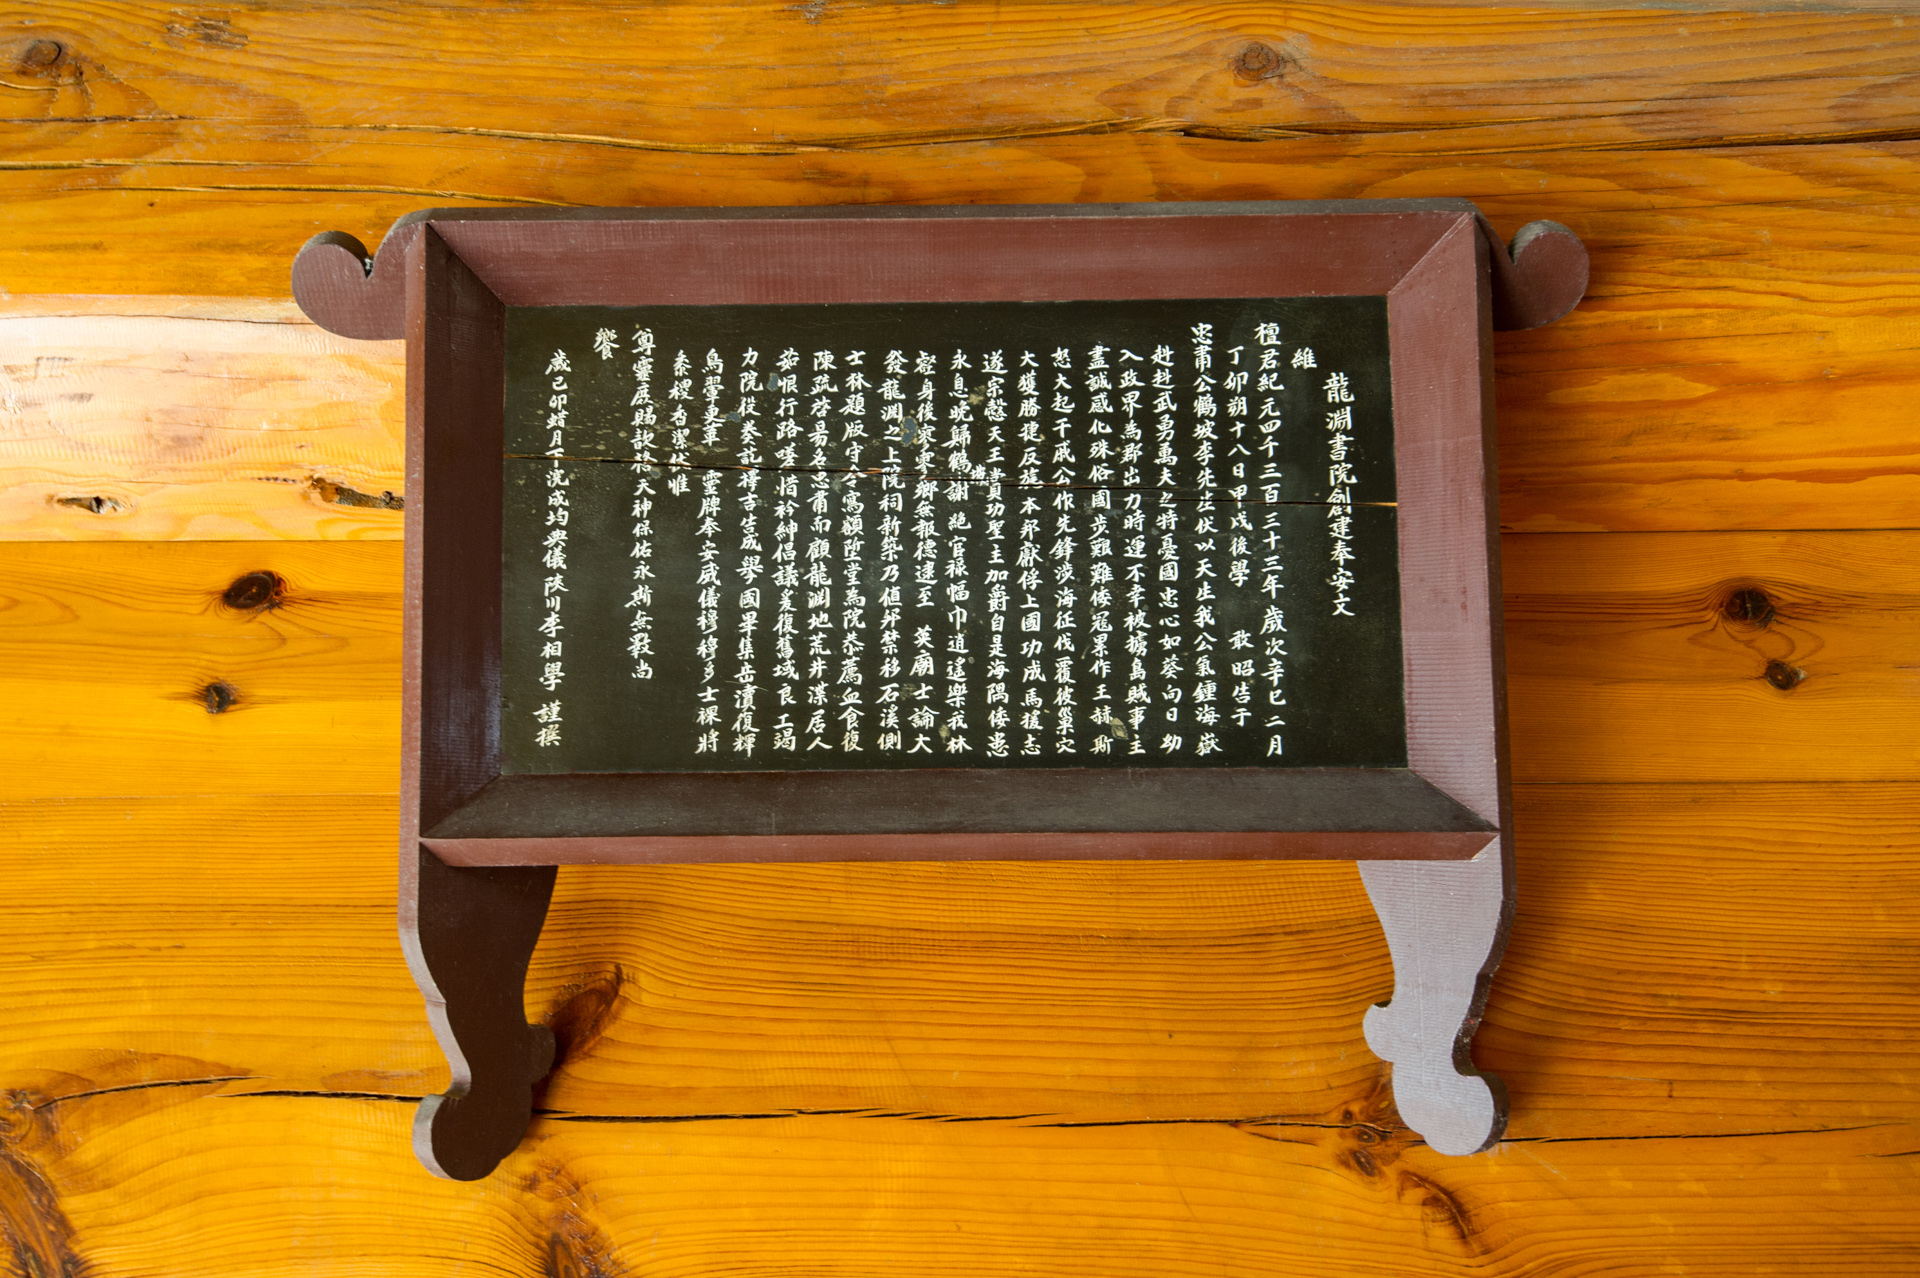 龍淵書院創建奉安文
維
檀君紀元四千三百三十三年歲次辛巳二月
丁卯朔十八日甲戌後學 敢昭告于
忠肅公鶴坡李先生伏以天生我公氣鍾海嶽
赳赳武勇萬夫之特憂國忠心如葵向日幼
入政界為郡出力時運不幸被擄島賊事主
盡誠感化殊俗國步艱難倭寇累作王赫斯
怒大起干戚公作先鋒涉海征伐覆彼巢穴
大獲勝捷反旆本邦獻俘上國功成馬援志
遂宗愨天王賞功聖主加爵自是海隅倭患
永息晚歸鶴謝絶官祿幅巾逍遙樂我林
壑身後寥寥鄉無報德逮至 英廟士論大
發龍淵之上院祠新築乃値邦禁移石溪側
士林題版守令寓額陞堂為院恭薦血食復
陳疏啓易名忠肅而顧龍淵地荒井渫居人
茹恨行路嗟惜衿紳倡議爰復舊域良工竭
力院役奏訖禮吉告成擧國畢集岳瀆復輝
鳥翬更革 靈牌奉安威儀穆穆多士祼將
黍稷香潔伏惟
尊靈庶賜歆格天神保佑永斯無斁尚
饗
歲己卯蜡月下浣成均典儀陜川李相學 謹撰